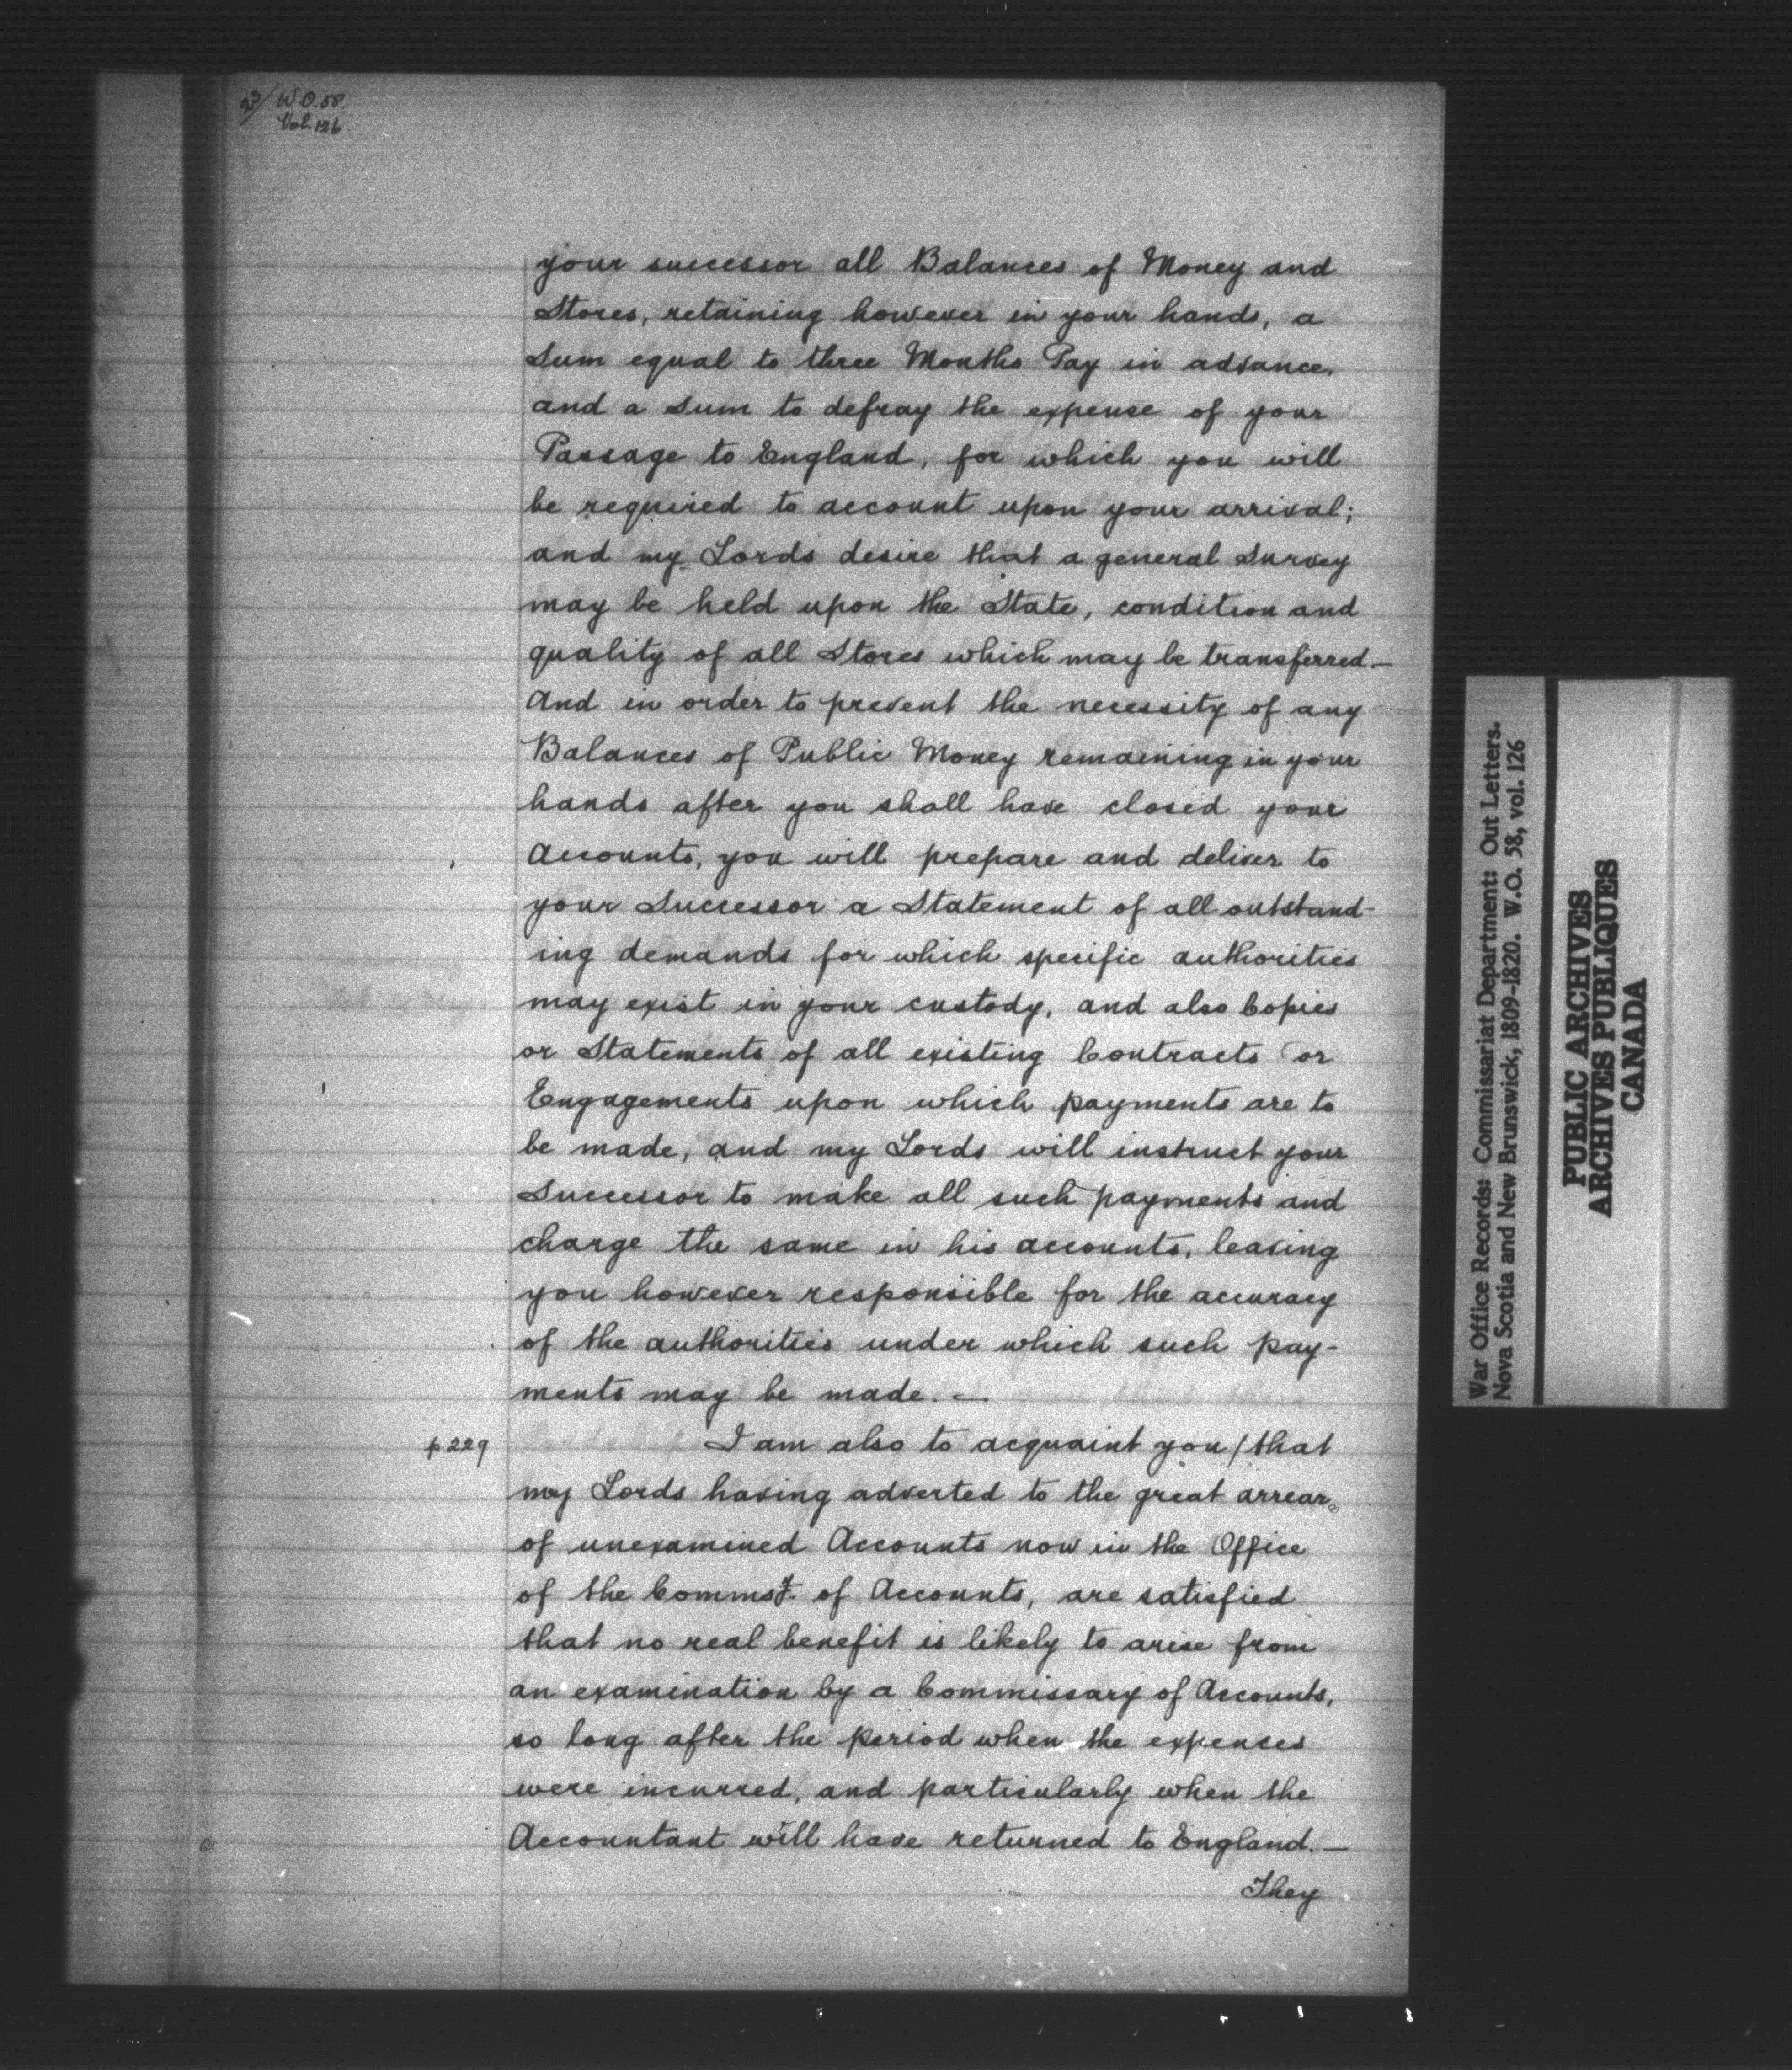 23/ W.O. 58.
Vol. 126.
your successor all Balances of Money and
Stores, retaining however in your hands, a
Sum equal to three Months Pay in advance,
and a Sum to defray the expense of your
Passage to England, for which you will
be required to account upon your arrival;
and my Lords desire that a general Survey
may be held upon the State, condition and
quality of all Stores which may be transferred.—
And in order to prevent the necessity of any
Balances of Public Money remaining in your
hands after you shall have closed your
Accounts, you will prepare and deliver to
your Successor a Statement of all outstand-
ing demands for which specific authorities
may exist in your custody, and also Copies
or Statements of all existing Contracts or
Engagements upon which payments are to
be made, and my Lords will instruct your
Successor to make all such payments and
charge the same in his accounts, leaving
you however responsible for the accuracy
of the authorities under which such pay-
ments may be made.—
p 229 I am also to acquaint you / that
my Lords having adverted to the great arrear
of unexamined Accounts now in the Office
of the Commsy. of Accounts, are satisfied
that no real benefit is likely to arise from
an examination by a Commissary of Accounts,
so long after the period when the expenses
were incurred, and particularly when the
Accountant will have returned to England.—
They
War Office Records: Commissariat Department: Out Letters.
Nova Scotia and New Brunswick, 1809-1820. W.O. 58, vol. 126
PUBLIC ARCHIVES
ARCHIVES PUBLIQUES
CANADA